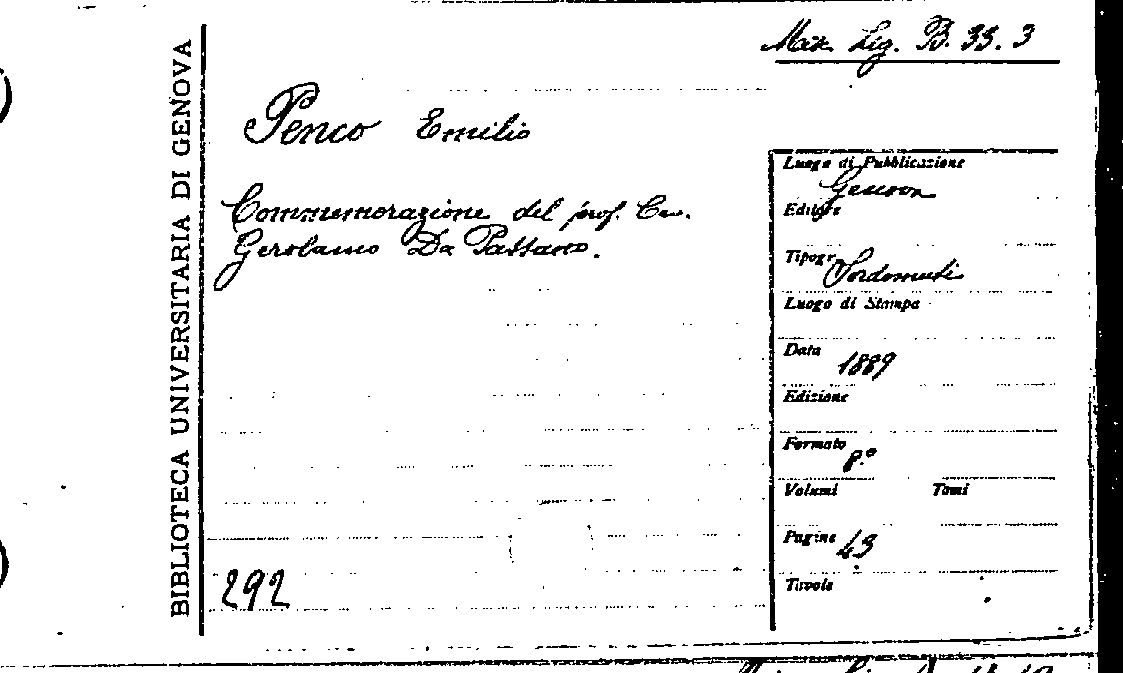 Misc. Lig. B. 35. 3
BIBLIOTECA UNIVERSITARIA DI GENOVA
Penco Emilio
Commemorazione del prof. Cav.
Gerolamo Da Passano.
292
Luogo di Pubblicazione
Genova
Editore
Tipogr. Sordomuti
Luogo di Stampa
Data 1889
Edizione
Formato 8.º
Volumi Tomi
Pagine 43
Tavole